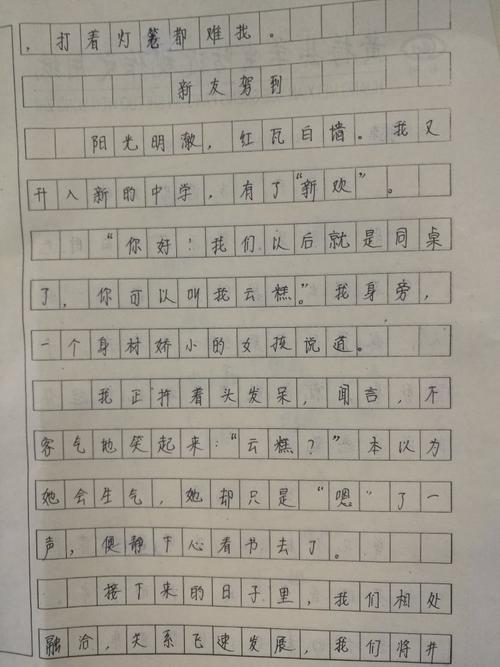 ，打着灯笼都难找。
新友驾到
阳光明澈，红瓦白墙。我又
升入新的中学，有了“新欢”。
“你好！我们以后就是同桌
了，你可以叫我云糕。”我身旁，
一个身材娇小的女孩说道。
我正拄着头发呆，闻言，不
客气地笑起来：“云糕？”本以为
她会生气，她却只是“嗯”了一
声，便静下心看书去了。
接下来的日子里，我们相处
融洽，关系飞速发展，我们将井